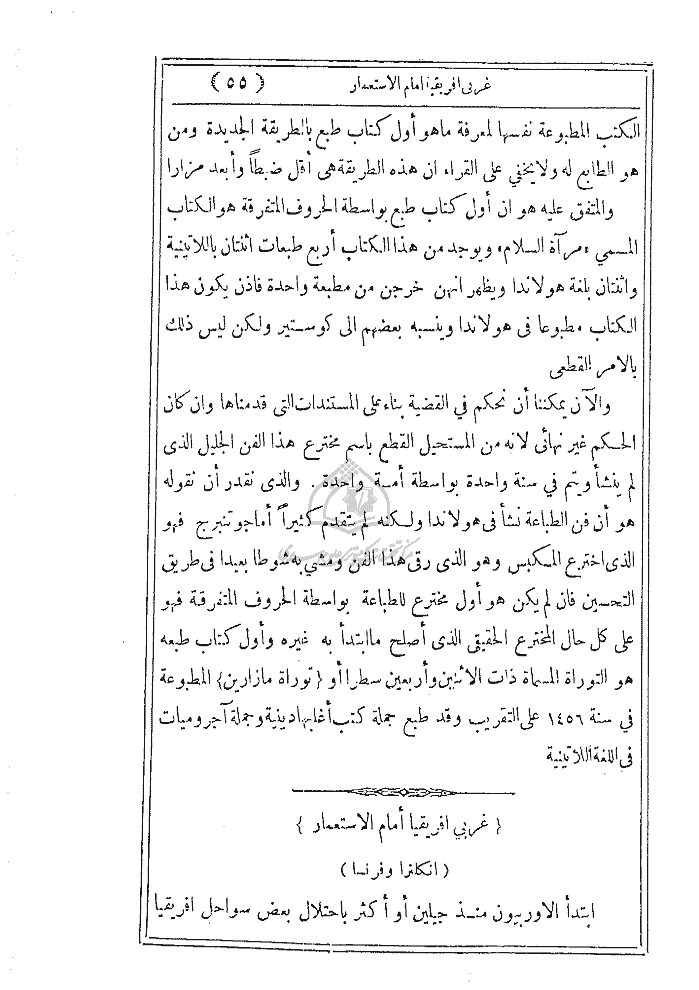 غربي افريقيا امام الاستعمار
(٥٥)
الكتب المطبوعة نفسها لمعرفة ماهو أول كتاب طبع بالطريقة الجديدة ومن
هو الطابع له ولايخفي على القراء ان هذه الطريقة هى أقل ضبطاً وأبعد مزارا
والمتفق عليه هو ان أول كتاب طبع بواسطة الحروف المتفرقة هو الكتاب
المسمي «مرآة السلام» ويوجد من هذا الكتاب أربع طبعات اثنتان باللاتينية
واثنتان بلغة هولاندا ويظهر انهن خرجن من مطبعة واحدة فاذن يكون هذا
الكتاب مطبوعا فى هولاندا وينسبه بعضهم الى كوستير ولكن ليس ذلك
بالامر القطعى
والآن يمكننا أن نحكم في القضية بناء على المستندات التى قدمناها وان كان
الحكم غير نهائى لانه من المستحيل القطع باسم مخترع هذا الفن الجليل الذى
لم ينشأ ويتم في سنة واحدة بواسطة أمة واحدة . والذى نقدر أن نقوله
هو أن فن الطباعة نشأ فى هولاندا ولكنه لم يتقدم كثيراً أما جوتنبرج فهو
الذى اخترع المكبس وهو الذى رقى هذا الفن ومشي به شوطا بعيدا فى طريق
التحسين فان لم يكن هو أول مخترع للطباعة بواسطة الحروف المتفرقة فهو
على كل حال المخترع الحقيقى الذى أصلح ما ابتدأ به غيره وأول كتاب طبعه
هو التوراة المسماة ذات الاثنين وأربعين سطرا أو {توراة مازارين} المطبوعة
في سنة ١٤٥٦ على التقريب وقد طبع جملة كتب أغلبها دينية وجملة آجروميات
فى اللغة اللاتينية
{ غربي افريقيا أمام الاستعمار }
( انكلترا وفرنسا )
ابتدأ الاوربيون منذ جيلين أو أكثر باحتلال بعض سواحل افريقيا